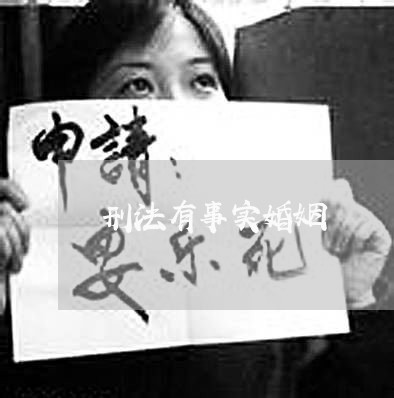 申請：
刑法有事实婚姻
安乐死